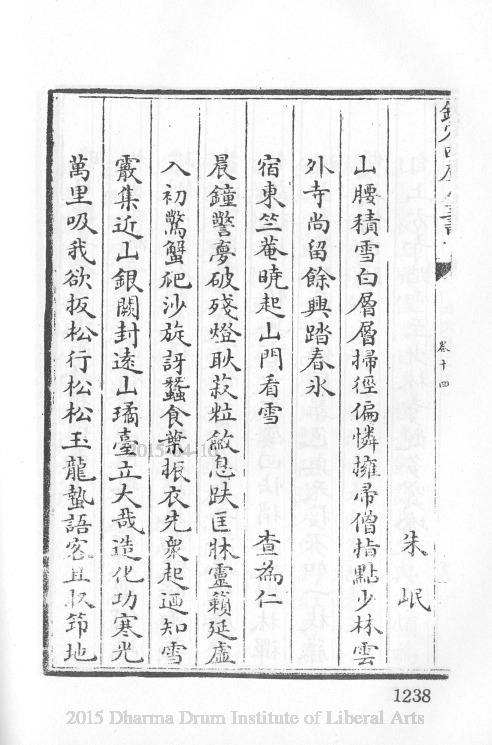 欽定四庫全書
卷十四
朱岷
山腰積雪白層層掃徑偏憐擁帚僧指點少林雲
外寺尚留餘興踏春氷
宿東竺菴曉起山門看雪 查為仁
晨鐘警夢破殘燈耿菽粒斂息趺匡牀靈籟延虛
入初驚蟹爬沙旋訝蠶食葉振衣先衆起迺知雪
霰集近山銀闕封遠山璚臺立大哉造化功寒光
萬里吸我欲扳松行松松玉龍蟄語客且収笻地
1238
2015-04-10
2015 Dharma Drum Institute of Liberal Arts